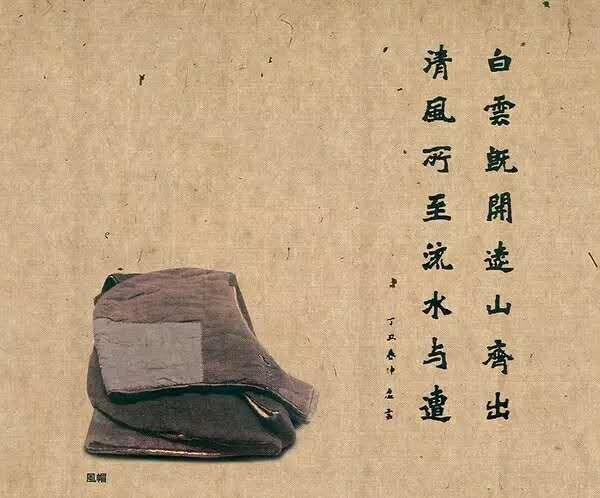 白雲既開遠山齊出
清風所至流水与遭
丁丑春仲書
風帽